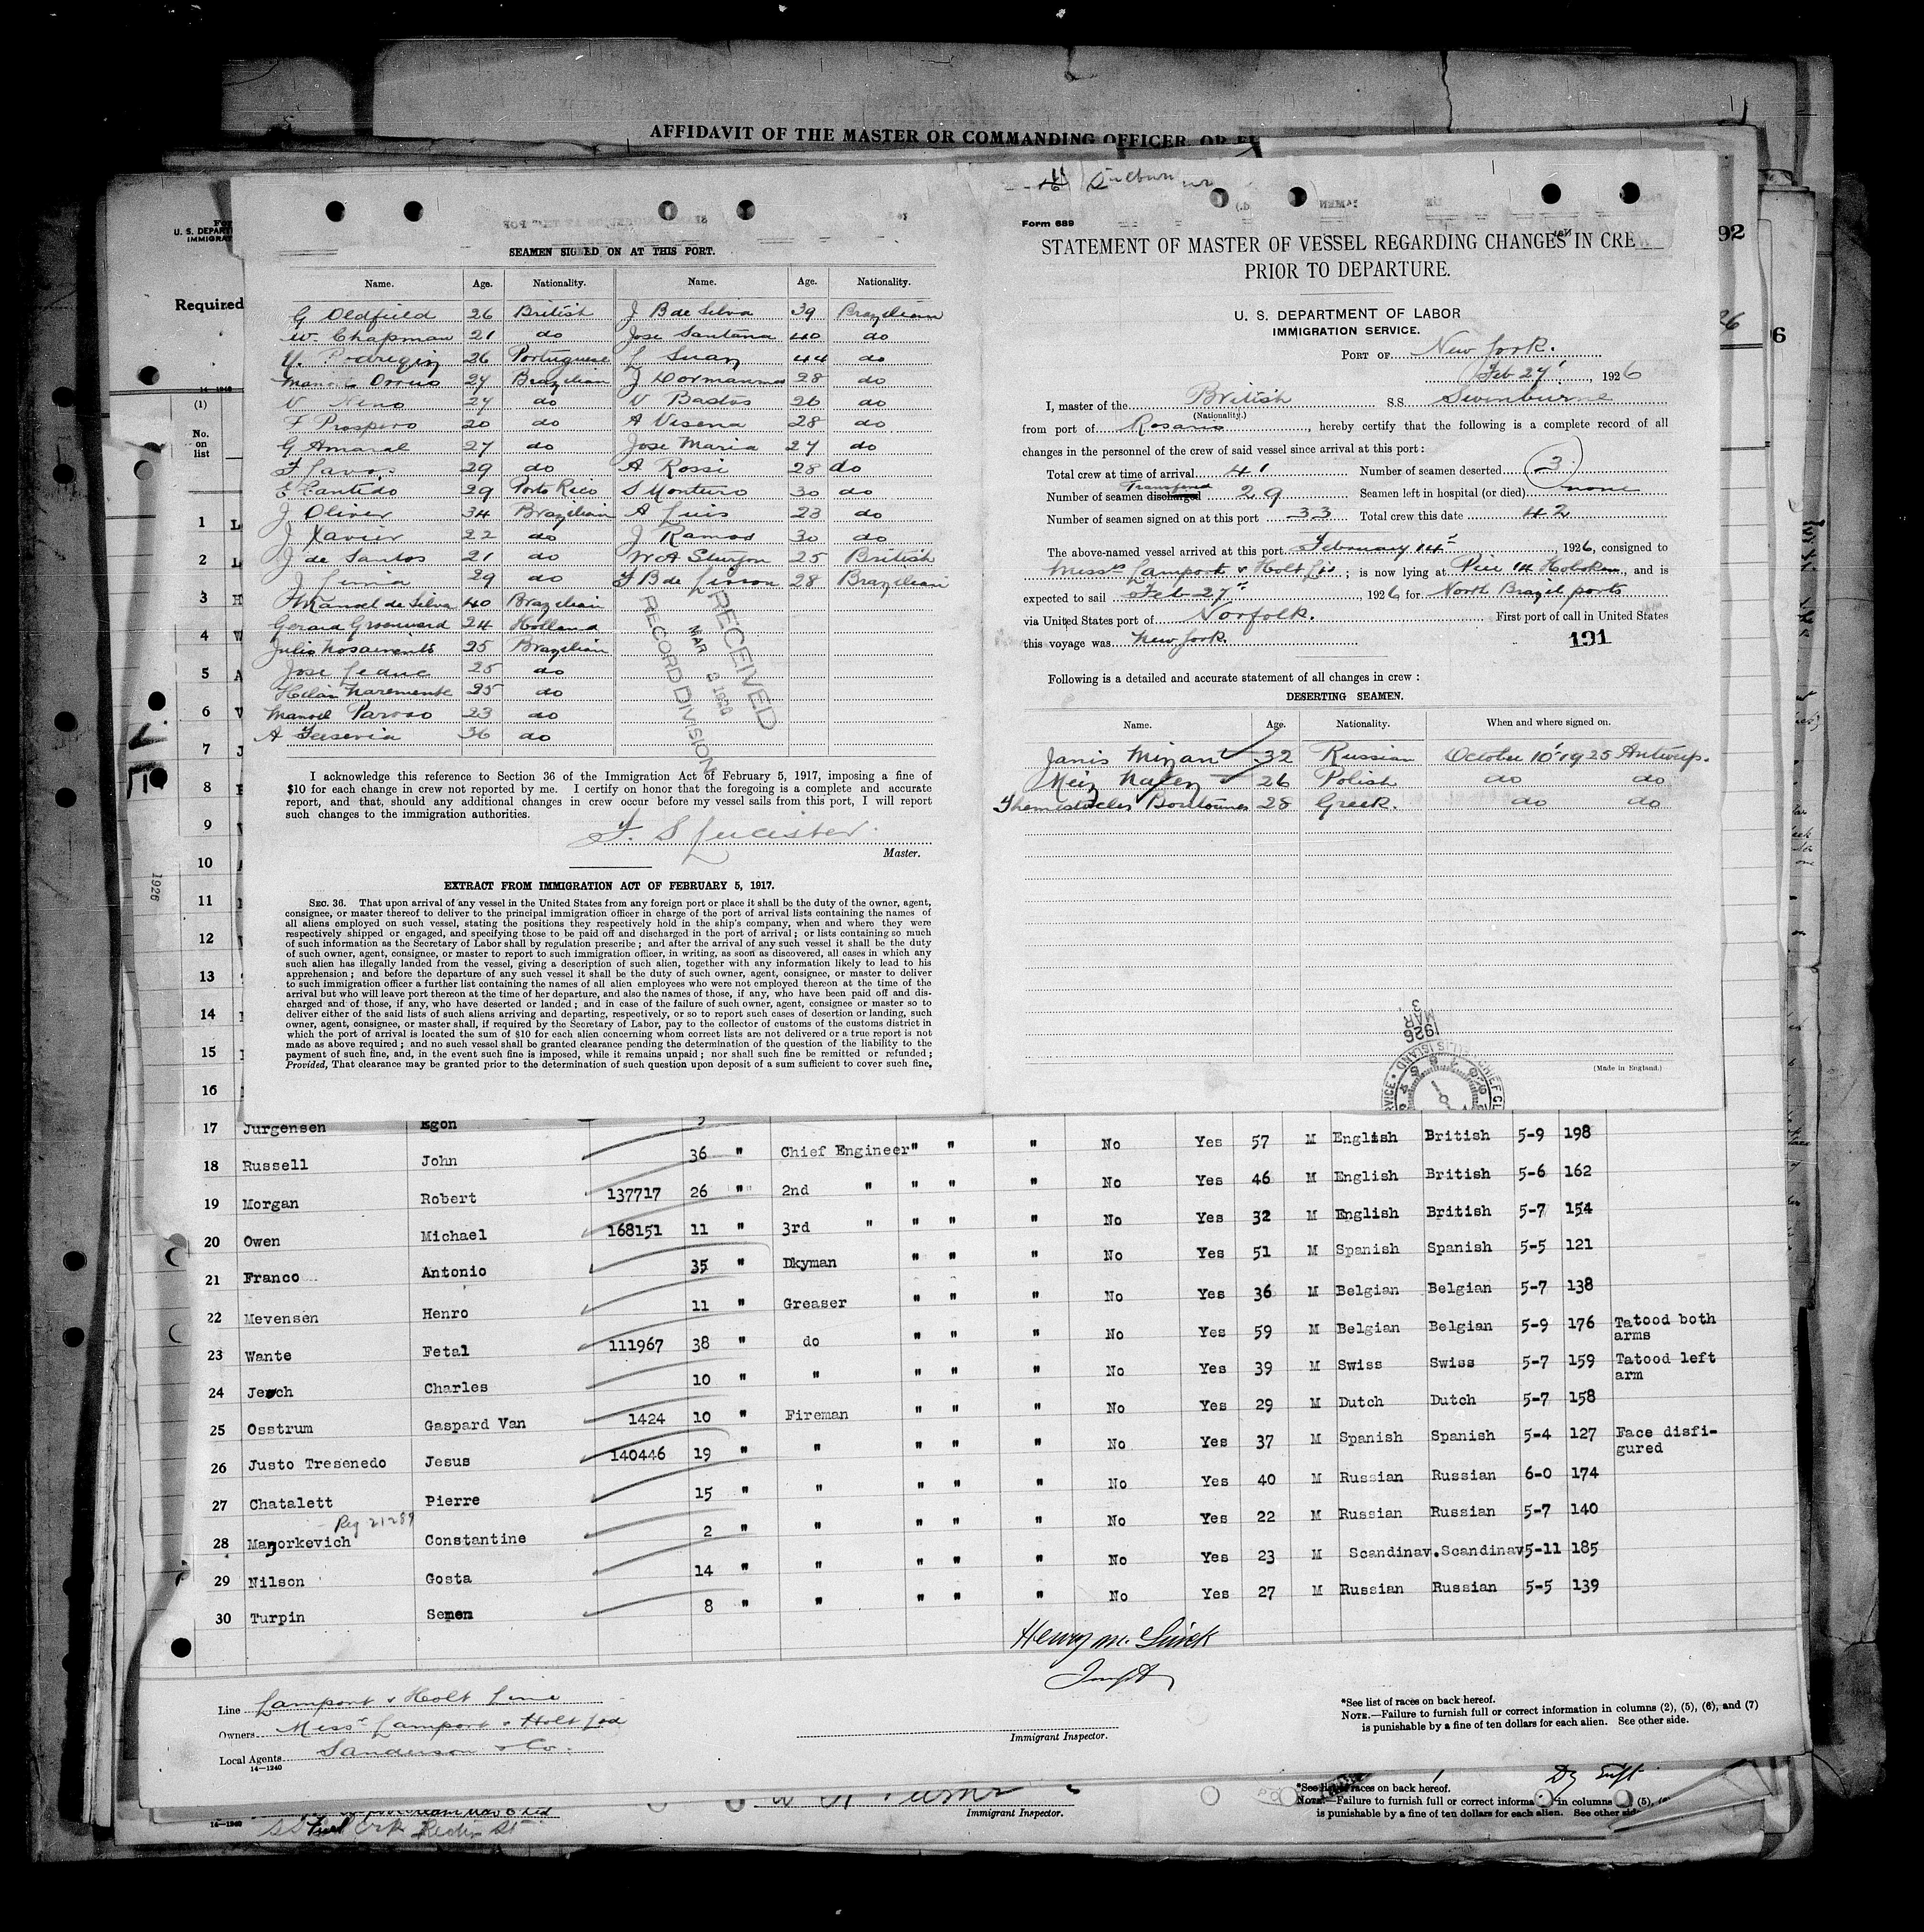 AFFIDAVIT OF THE MASTER OR COMMANDING OFFICER, OR
SEAMEN SIGNED ON AT THIS PORT.
Name. Age. Nationality. Name. Age. Nationality.
G Oldfield 26 British J B de Silva 39 Brazilian
W. Chapman 21 do Jose Santana 40 do
26 Portuguese 44 do
27 Brazilian 28 do
27 do V Bastos 26 do
F Prospero 20 do A Visena 28 do
G Amaral 27 do Jose Maria 27 do
29 do A Rossi 28 do
E Cantido 29 Porto Rico S Monteiro 30 do
J Oliver 34 Brazilian A Luis 23 do
J Xavier 22 do J Ramos 30 do
J de Santos 21 do W A Sturgon 25 British
29 do 28 Brazilian
Manoel de Silva 40 Brazilian
Gerard 24 Holland
Julio 25 Brazilian
Jose Leduc 25 do
25 do
Manoel 23 do
A 36 do
RECEIVED
MAR 3 1926
RECORD DIVISION
I acknowledge this reference to Section 36 of the Immigration Act of February 5, 1917, imposing a fine of
$10 for each change in crew not reported by me. I certify on honor that the foregoing is a complete and accurate
report, and that, should any additional changes in crew occur before my vessel sails from this port, I will report
such changes to the immigration authorities.
Master.
EXTRACT FROM IMMIGRATION ACT OF FEBRUARY 5, 1917.
SEC. 36. That upon arrival of any vessel in the United States from any foreign port or place it shall be the duty of the owner, agent,
consignee, or master thereof to deliver to the principal immigration officer in charge of the port of arrival lists containing the names of
all aliens employed on such vessel, stating the positions they respectively hold in the ship's company, when and where they were
respectively shipped or engaged, and specifying those to be paid off and discharged in the port of arrival; or lists containing so much
of such information as the Secretary of Labor shall by regulation prescribe; and after the arrival of any such vessel it shall be the duty
of such owner, agent, consignee, or master to report to such immigration officer, in writing, as soon as discovered, all cases in which any
such alien has illegally landed from the vessel, giving a description of such alien, together with any information likely to lead to his
apprehension; and before the departure of any such vessel it shall be the duty of such owner, agent, consignee, or master to deliver
to such immigration officer a further list containing the names of all alien employees who were not employed thereon at the time of the
arrival but who will leave port thereon at the time of her departure, and also the names of those, if any, who have been paid off and dis-
charged and of those, if any, who have deserted or landed; and in case of the failure of such owner, agent, consignee or master so to
deliver either of the said lists of such aliens arriving and departing, respectively, or so to report such cases of desertion or landing, such
owner, agent, consignee, or master shall, if required by the Secretary of Labor, pay to the collector of customs of the customs district in
which the port of arrival is located the sum of $10 for each alien concerning whom correct lists are not delivered or a true report is not
made as above required; and no such vessel shall be granted clearance pending the determination of the question of the liability to the
payment of such fine, and, in the event such fine is imposed, while it remains unpaid; nor shall such fine be remitted or refunded;
Provided, That clearance may be granted prior to the determination of such question upon deposit of a sum sufficient to cover such fine,
Form 689
STATEMENT OF MASTER OF VESSEL REGARDING CHANGES IN CRE
PRIOR TO DEPARTURE.
U. S. DEPARTMENT OF LABOR
IMMIGRATION SERVICE.
PORT OF New York.
Feb 27, 1926
I, master of the British S.S. Swinburne
(Nationality.)
from port of Rosario, hereby certify that the following is a complete record of all
changes in the personnel of the crew of said vessel since arrival at this port:
Total crew at time of arrival 41 Number of seamen deserted 3
Number of seamen discharged 29 Seamen left in hospital (or died) none
Number of seamen signed on at this port 33 Total crew this date 42
The above-named vessel arrived at this port February 14, 1926, consigned to
Messrs Lamport & Holt; is now lying at Pier 14 Hoboken, and is
expected to sail Feb 27, 1926 for North Brazil ports
via United States port of Norfolk. First port of call in United States
this voyage was New York.
191
Following is a detailed and accurate statement of all changes in crew:
DESERTING SEAMEN.
Name. Age. Nationality. When and where signed on.
Janis Mizant 32 Russian October 10 1925 Antwerp.
26 Polish do do
28 Greek. do do
MAR 3 1926
(Made in England.)
U. S. DEPART
IMMIGRAT
Required
14-1240
(1)
No.
on
list
1
2
3
4
5
6
7
8
9
10
11
12
13
14
15
16
92
6
1926
17 Jurgensen Egon
18 Russell John 36 " Chief Engineer " " " No Yes 57 M English British 5-9 198
19 Morgan Robert 137717 26 " 2nd " " " " No Yes 46 M English British 5-6 162
20 Owen Michael 168151 11 " 3rd " " " " No Yes 32 M English British 5-7 154
21 Franco Antonio 35 " Dkyman " " " No Yes 51 M Spanish Spanish 5-5 121
22 Mevensen Henro 11 " Greaser " " " No Yes 36 M Belgian Belgian 5-7 138
23 Wante Fetal 111967 38 " do " " " No Yes 59 M Belgian Belgian 5-9 176 Tatood both
arms
24 Charles 10 " " " " " No Yes 39 M Swiss Swiss 5-7 159 Tatood left
arm
25 Osstrum Gaspard Van 1424 10 " Fireman " " " No Yes 29 M Dutch Dutch 5-7 158
26 Justo Tresenedo Jesus 140446 19 " " " " " No Yes 37 M Spanish Spanish 5-4 127 Face disfi-
gured
27 Chatalett Pierre 15 " " " " " No Yes 40 M Russian Russian 6-0 174
Reg 21289
28 Manorkevich Constantine 2 " " " " " No Yes 22 M Russian Russian 5-7 140
29 Nilson Gosta 14 " " " " " No Yes 23 M Scandinav. Scandinav 5-11 185
30 Turpin Semen 8 " " " " " No Yes 27 M Russian Russian 5-5 139
Line Lamport & Holt Line
Owners Messrs Lamport & Holt Ltd
Local Agents Sanderson & Co.
14-1240
Immigrant Inspector.
*See list of races on back hereof.
NOTE.—Failure to furnish full or correct information in columns (2), (5), (6), and (7)
is punishable by a fine of ten dollars for each alien. See other side.
*See list of races on back hereof.
NOTE.—Failure to furnish full or correct informa in columns (5),
is punishable by a fine of ten dollars for each alien. See other side
Immigrant Inspector.
14-1240